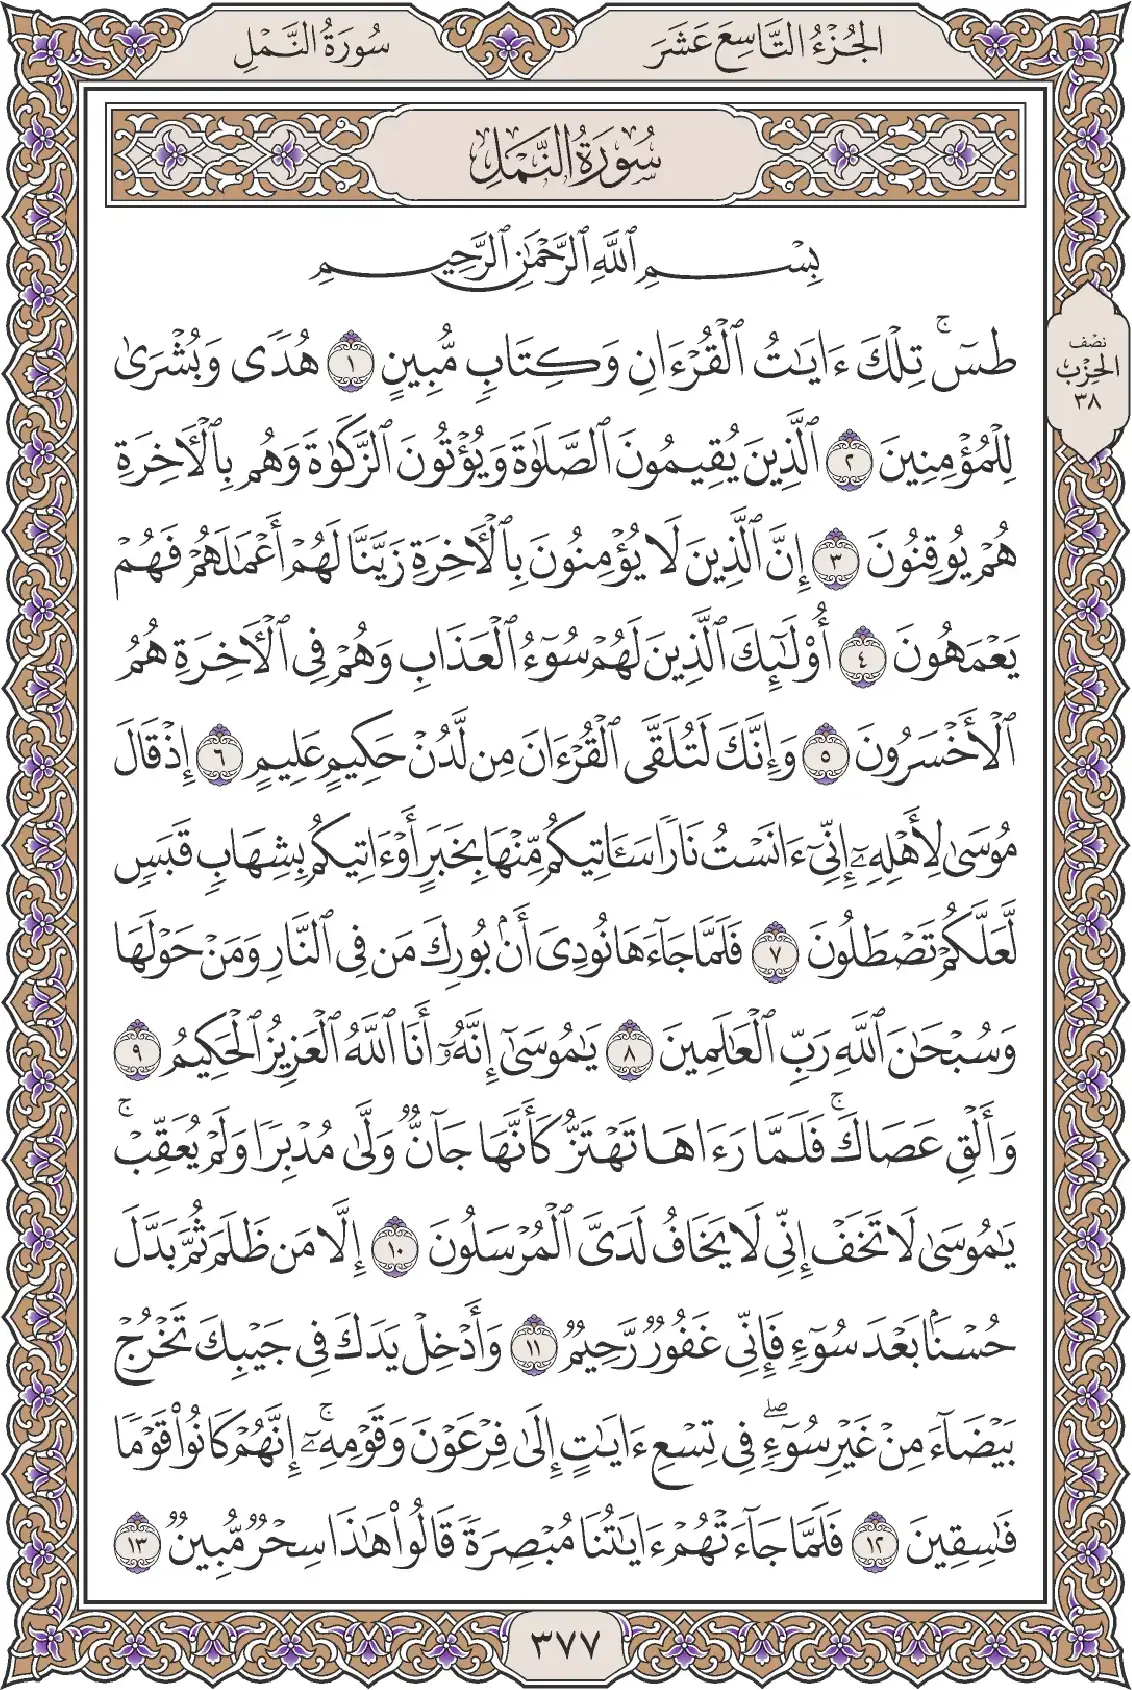 الجُزْءُ التَّاسِعَ عَشَرَ
سُورَةُ النَّمْلِ
سُورَةُ النَّمْلِ
بِسْمِ ٱللَّهِ ٱلرَّحْمَٰنِ ٱلرَّحِيمِ
طسٓۚ تِلْكَ ءَايَٰتُ ٱلْقُرْءَانِ وَكِتَابٍ مُّبِينٍ ١ هُدًى وَبُشْرَىٰ
لِلْمُؤْمِنِينَ ٢ ٱلَّذِينَ يُقِيمُونَ ٱلصَّلَوٰةَ وَيُؤْتُونَ ٱلزَّكَوٰةَ وَهُم بِٱلْأَخِرَةِ
هُمْ يُوقِنُونَ ٣ إِنَّ ٱلَّذِينَ لَا يُؤْمِنُونَ بِٱلْأَخِرَةِ زَيَّنَّا لَهُمْ أَعْمَٰلَهُمْ فَهُمْ
يَعْمَهُونَ ٤ أُو۟لَٰٓئِكَ ٱلَّذِينَ لَهُمْ سُوٓءُ ٱلْعَذَابِ وَهُمْ فِى ٱلْأَخِرَةِ هُمُ
ٱلْأَخْسَرُونَ ٥ وَإِنَّكَ لَتُلَقَّى ٱلْقُرْءَانَ مِن لَّدُنْ حَكِيمٍ عَلِيمٍ ٦ إِذْ قَالَ
مُوسَىٰ لِأَهْلِهِۦٓ إِنِّىٓ ءَانَسْتُ نَارًا سَـَٔاتِيكُم مِّنْهَا بِخَبَرٍ أَوْ ءَاتِيكُم بِشِهَابٍ قَبَسٍ
لَّعَلَّكُمْ تَصْطَلُونَ ٧ فَلَمَّا جَآءَهَا نُودِىَ أَنۢ بُورِكَ مَن فِى ٱلنَّارِ وَمَنْ حَوْلَهَا
وَسُبْحَٰنَ ٱللَّهِ رَبِّ ٱلْعَٰلَمِينَ ٨ يَٰمُوسَىٰٓ إِنَّهُۥٓ أَنَا ٱللَّهُ ٱلْعَزِيزُ ٱلْحَكِيمُ ٩
وَأَلْقِ عَصَاكَۚ فَلَمَّا رَءَاهَا تَهْتَزُّ كَأَنَّهَا جَآنٌّ وَلَّىٰ مُدْبِرًا وَلَمْ يُعَقِّبْۚ
يَٰمُوسَىٰ لَا تَخَفْ إِنِّى لَا يَخَافُ لَدَىَّ ٱلْمُرْسَلُونَ ١٠ إِلَّا مَن ظَلَمَ ثُمَّ بَدَّلَ
حُسْنًۢا بَعْدَ سُوٓءٍ فَإِنِّى غَفُورٌ رَّحِيمٌ ١١ وَأَدْخِلْ يَدَكَ فِى جَيْبِكَ تَخْرُجْ
بَيْضَآءَ مِنْ غَيْرِ سُوٓءٍۖ فِى تِسْعِ ءَايَٰتٍ إِلَىٰ فِرْعَوْنَ وَقَوْمِهِۦٓۚ إِنَّهُمْ كَانُوا۟ قَوْمًا
فَٰسِقِينَ ١٢ فَلَمَّا جَآءَتْهُمْ ءَايَٰتُنَا مُبْصِرَةً قَالُوا۟ هَٰذَا سِحْرٌ مُّبِينٌ ١٣
نصف
الحِزْب
٣٨
٣٧٧